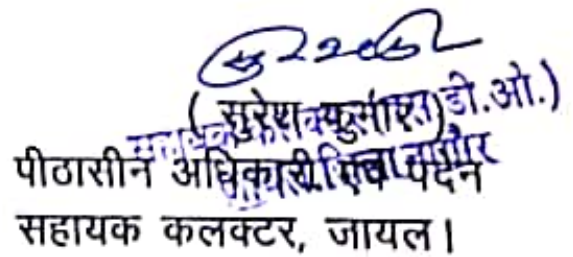 ( सुरेश कुमार )
डी.ओ.)
पीठासीन अधिकारी एवं पदेन
सहायक कलक्टर, जायल।